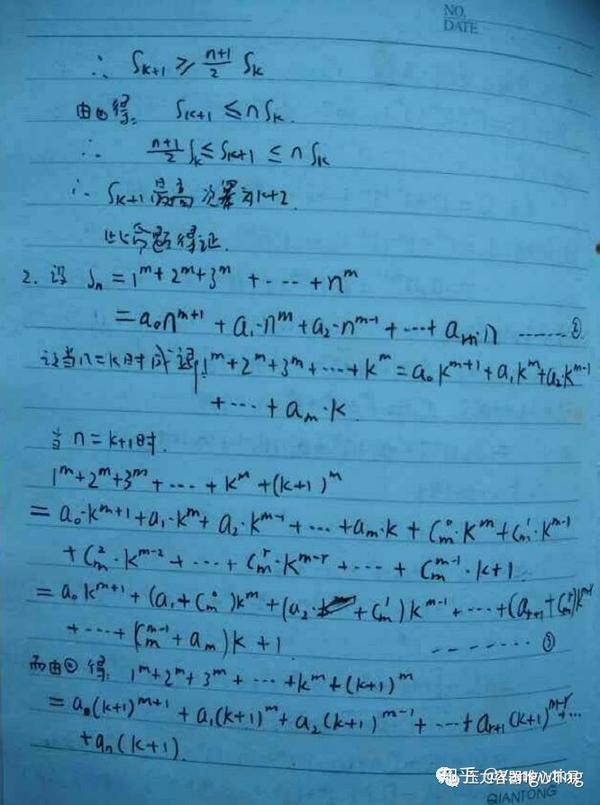 NO.
DATE
∴ S_{k+1} ≥ \frac{n+1}{2} S_k
由①得: S_{k+1} ≤ n S_k.
∴ \frac{n+1}{2} S_k ≤ S_{k+1} ≤ n S_k
∴ S_{k+1} 最高次幂为 k+2.
此命题得证.
2. 设 S_n = 1^m + 2^m + 3^m + ⋯ + n^m
= a_0 n^{m+1} + a_1·n^m + a_2·n^{m-1} + ⋯ + a_m·n ------ ②
设当 n=k 时成 1^m + 2^m + 3^m + ⋯ + k^m = a_0 k^{m+1} + a_1 k^m + a_2·k^{m-1}
+ ⋯ + a_m·k.
当 n=k+1 时.
1^m + 2^m + 3^m + ⋯ + k^m + (k+1)^m
= a_0·k^{m+1} + a_1·k^m + a_2·k^{m-1} + ⋯ + a_m·k + C_m^0·k^m + C_m^1·k^{m-1}
+ C_m^2·k^{m-2} + ⋯ + C_m^r·k^{m-r} + ⋯ + C_m^{m-1}·k+1
= a_0 k^{m+1} + (a_1 + C_m^0)k^m + (a_2 + C_m^1)k^{m-1} + ⋯ + (a_{r+1} + C_m^r)k^{m-r}
+ ⋯ + (C_m^{m-1} + a_m)k + 1 ------ ③
而由②得: 1^m + 2^m + 3^m + ⋯ + k^m + (k+1)^m
= a_0(k+1)^{m+1} + a_1(k+1)^m + a_2(k+1)^{m-1} + ⋯ + a_{r+1}(k+1)^{m-r} + ⋯
+ a_n(k+1).
QIANTONG